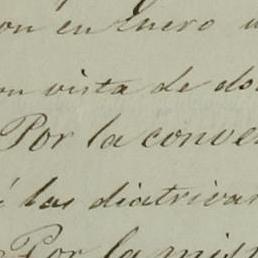 on en Enero
on vista de do
Por la conve
las diatriva
Por la mism